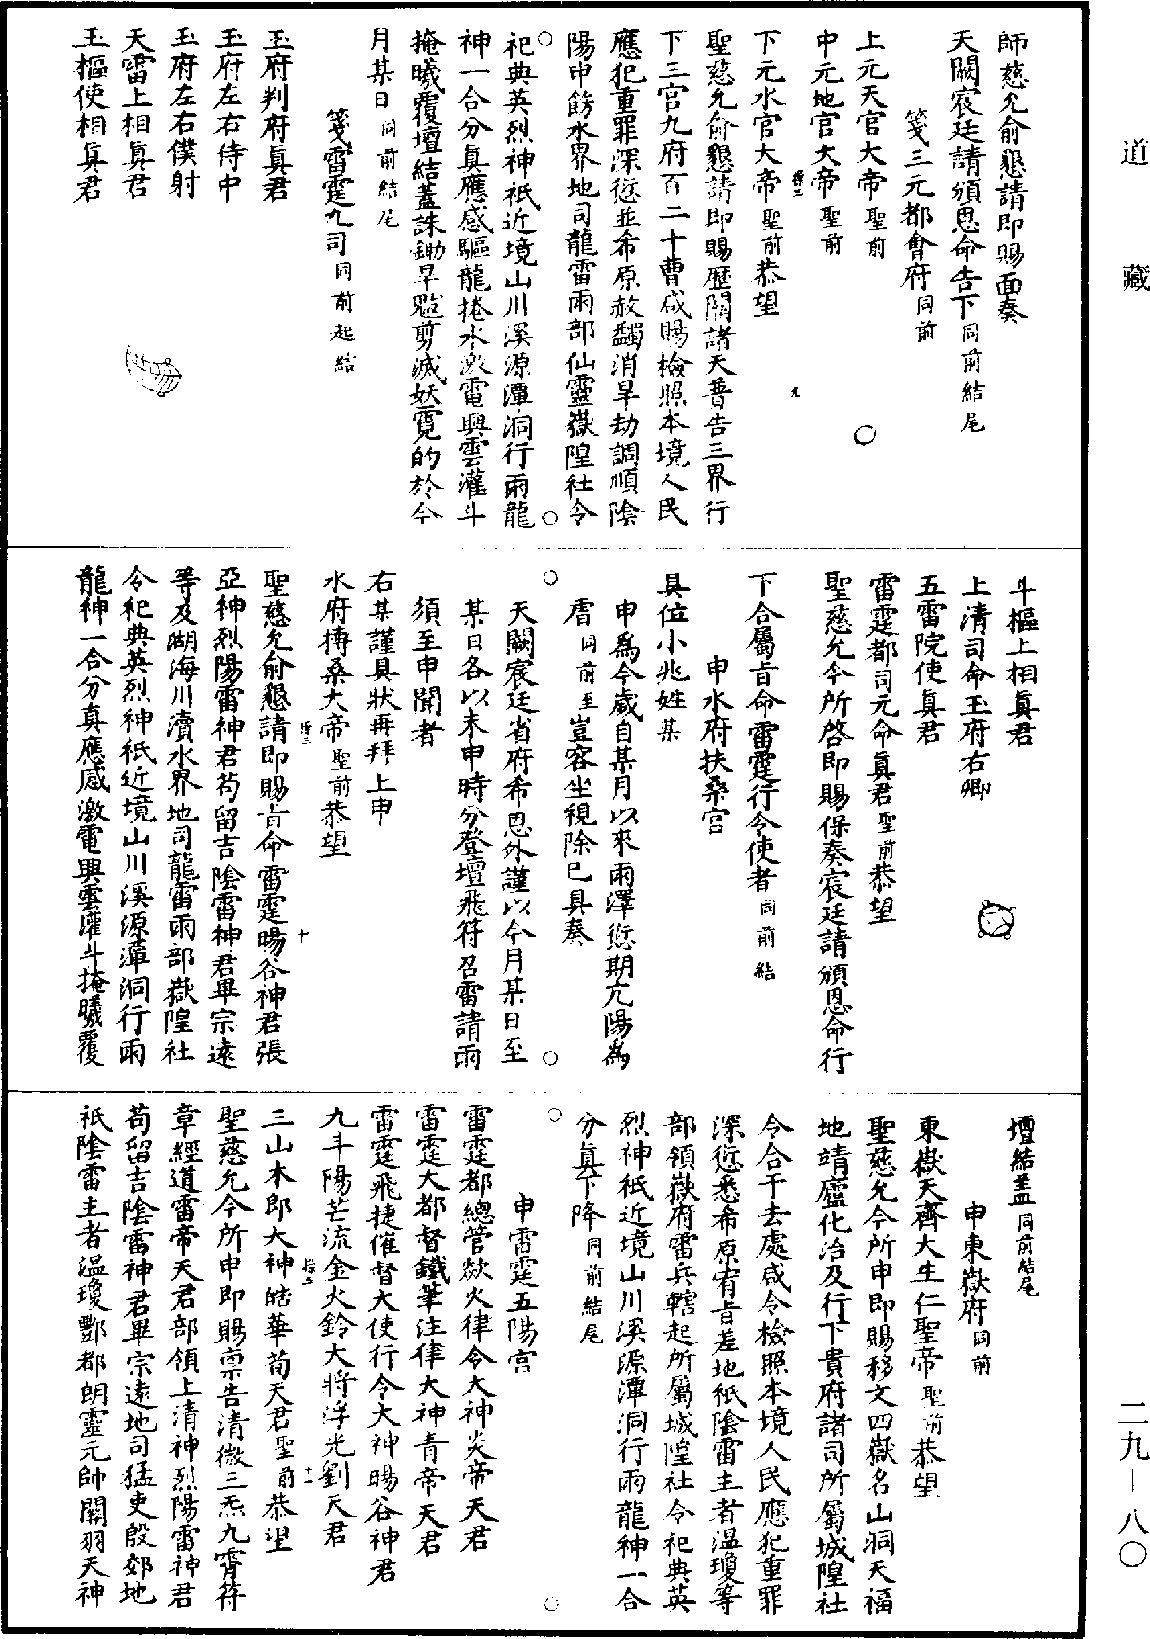 道藏
師慈允俞懇請即賜面奏
天闕宸廷請頒恩命告下同前結尾
箋三元都會府同前
上元天官大帝聖前
中元地官大帝聖前
下元水官大帝聖前恭望
聖慈允俞懇請即賜歷關諸天普告三界行
下三官九府百二十曹咸賜檢照本境人民
應犯重罪深愆並希原赦蠲消旱劫調順陰
陽申飭水界地司龍雷雨部仙靈嶽隍社令
祀典英烈神祇近境山川溪源潭洞行雨龍
神一合分真應感驅龍捲水激電興雲灌斗
掩曦覆壇結蓋誅鋤旱魃剪滅妖霓的於今
月某日同前結尾
箋雷霆九司同前起結
玉府判府真君
玉府左右侍中
玉府左右僕射
天雷上相真君
玉樞使相真君
斗樞上相真君
上清司命玉府右卿
五雷院使真君
雷霆都司元命真君聖前恭望
聖慈允今所啓即賜保奏宸廷請頒恩命行
下合屬旨命雷霆行令使者同前結
申水府扶桑宮
具位小兆姓某
申為今歲自某月以來雨澤愆期亢陽為
𤯝同前至豈容坐視除已具奏
天闕宸廷省府希恩外謹以今月某日至
某日各以未申時分登壇飛符召雷請雨
須至申聞者
右某謹具狀再拜上申
水府搏桑大帝聖前恭望
聖慈允俞懇請即賜旨命雷霆暘谷神君張
亞神烈陽雷神君苟留吉陰雷神君畢宗遠
等及湖海川瀆水界地司龍雷雨部嶽隍社
令祀典英烈神祇近境山川溪源潭洞行雨
龍神一合分真應感激電興雲灌斗掩曦覆
壇結蓋同前結尾
申東嶽府同前
東嶽天齊大生仁聖帝聖前恭望
聖慈允今所申即賜移文四嶽名山洞天福
地靖廬化治及行下貴府諸司所屬城隍社
令合干去處咸令檢照本境人民應犯重罪
深愆悉希原宥旨差地祇陰雷主者溫瓊等
部領嶽府雷兵轄起所屬城隍社令祀典英
烈神祇近境山川溪源潭洞行雨龍神一合
分真下降同前結尾
申雷霆五陽宮
雷霆都總管歘火律令大神炎帝天君
雷霆大都督鐵筆注律大神青帝天君
雷霆飛捷催督大使行令大神暘谷神君
九斗陽芒流金火鈴大將浮光劉天君
三山木郎大神皓華荀天君聖前恭望
聖慈允今所申即賜禀告清微三炁九霄符
章經道雷帝天君部領上清神烈陽雷神君
苟留吉陰雷神君畢宗遠地司猛吏殷郊地
祇陰雷主者溫瓊酆都朗靈元帥關羽天神
二九—八〇